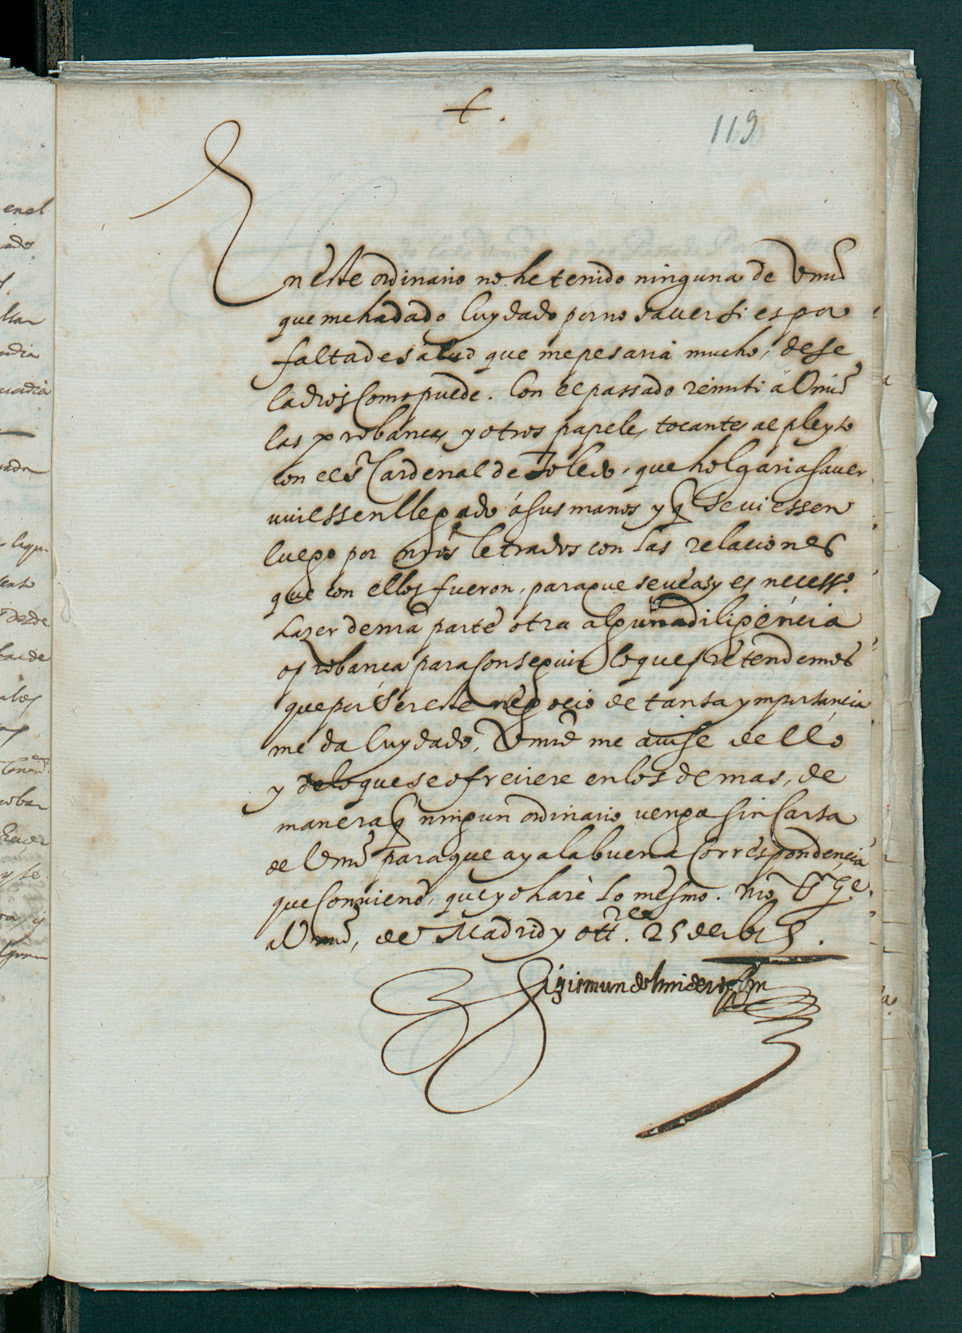 119
En este ordinario no he tenido ninguna de Vmd
que me ha dado Cuydado por no saver si es por
falta de salud que me pesaria mucho, dese
la dios Como puede. Con el passado remiti á Vmd
las probanças y otros papeles tocantes al pleyto
con el sr Cardenal de Toledo, que holgaria saver
uuiessen llegado á sus manos y q se viessen
luego por nros letrados con las relaciones
que con ellos fueron, para que se vea si es necesso.
hazer de mi parte otra alguna diligencia
o probanca para Conseguir lo que pretendemos
que por ser este negocio de tanta ymportancia
me da Cuydado, Vmd me auise dello
y de lo que se ofreciere en los demas, de
manera q ningun ordinario venga sin Carta
de Vmd para que aya la buena Correspondencia
que Conviene, que yo haré lo mesmo. Nro Sr Ge
a Vmd, de Madrid y ottre 25 de